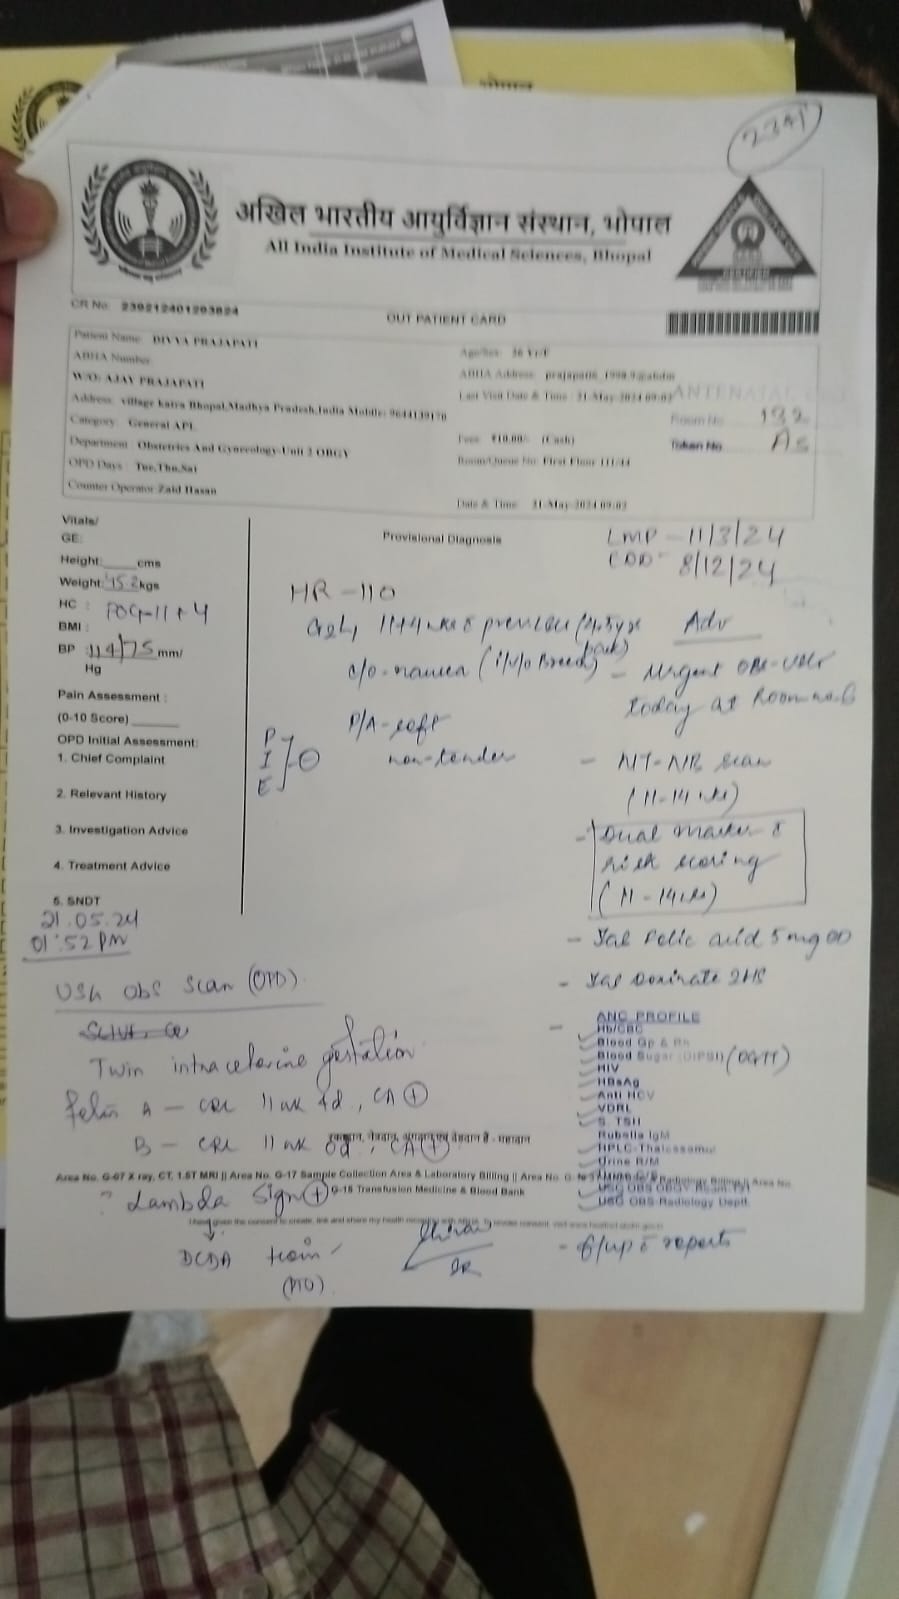 2341
अखिल भारतीय आयुर्विज्ञान संस्थान, भोपाल
All India Institute of Medical Sciences, Bhopal
CR No: 230212401203824
OUT PATIENT CARD
Patient Name: DIVYA PRAJAPATI
Age/Sex: Yr/F
ABHA Number
ABHA Address:
W/O: AJAY PRAJAPATI
Last Visit Date & Time : 21-May-2024 09:02
ANTENATAL
Address: village Bhopal,Madhya Pradesh,India Mobile:
Room No. 132
Category: General APL
Fees: ₹10.00/- (Cash)
Token No. A5
Department: Obstetrics And Gynecology-Unit 2 OBGY
Room/Queue No: First Floor 111/44
OPD Days : Tue,Thu,Sat
Counter Operator: Zaid Hasan
Date & Time: 21-May-2024 09:02
Vitals/
GE:
Height: cms
Weight: 45.2 kgs
HC : POG-11+4
BMI :
BP : 114/75 mm/
Hg
Pain Assessment :
(0-10 Score)
OPD Initial Assessment:
1. Chief Complaint
2. Relevant History
3. Investigation Advice
4. Treatment Advice
5. SNDT
21.05.24
01:52 PM
Provisional Diagnosis
LMP - 11/3/24
EDD - 8/12/24
HR-110
11+4 wk
c/o - nausea
P/A - soft
non-tender
P
I
E
Adv
- Urgent OBS-USG
today at Room no. 6
- NT-NB scan
(11-14 wks)
- Dual marker
risk scoring
(11-14 wks)
- Tab Folic acid 5 mg OD
- Tab Doxinate 2HS
ANC PROFILE
Hb/CBC
Blood Gp & Rh
Blood Sugar (DIPSI) (OGTT)
HIV
HBsAg
Anti HCV
VDRL
S. TSH
Rubella IgM
HPLC-Thalassemia
Urine R/M
USG OBS-Radiology Deptt.
- f/up c reports
USG Obs Scan (OPD).
Twin intrauterine gestation
Fetus A - CRL 11 wk 4d, CA +
B - CRL 11 wk 0d, CA +
Area No. G-07 X ray, CT, 1.5T MRI || Area No. G-17 Sample Collection Area & Laboratory Billing || Area No.
G-15 Transfusion Medicine & Blood Bank
? Lambda Sign +
DCDA twin
(PTO)
SR